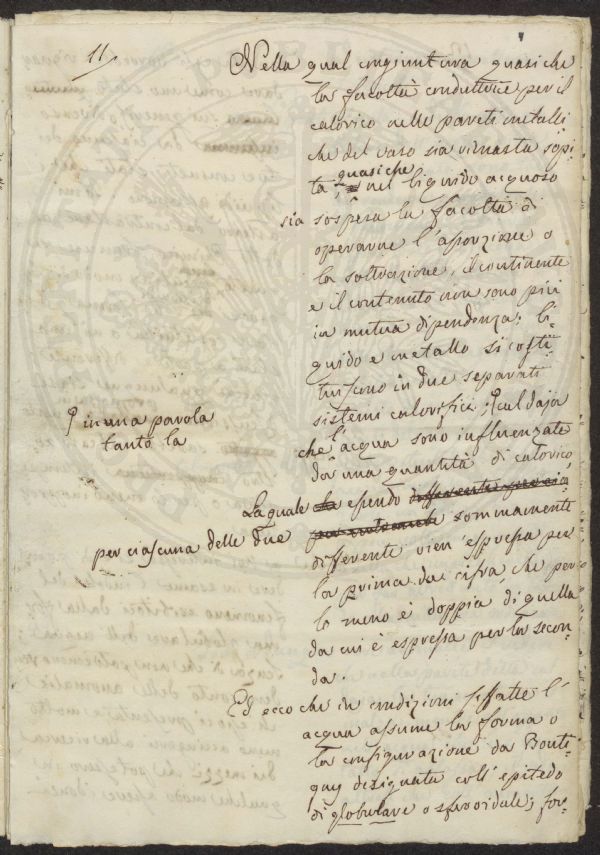 11/
Nella qual congiuntura quasi che
la facoltà conduttrice per il
calorico nelle pareti metalli
che del vaso sia rimasta sopi
ta, quasi che nel liquido acquoso
sia sospesa la facoltà di
operarne l'assorzione o
la soltrazione, il continente
e il contenuto non sono più
in mutua dipendenza; li
quido e metallo si costi
tuiscono in due separati
sistemi calorifici; caldaja
in una parola
tanto la
che l'acqua sono influenzate
da una quantità di calorico
La quale essendo differente per cia
per ciascuna delle due sommamente
differente vien espressa per
la prima da cifra, che per
lo meno è doppia di quella
da cui è espressa per la secon-
da.
Ed ecco che in condizioni siffatte l'
acqua assume la forma o
la configurazione da Bouti
gny designata coll'epitedo
di globulare o sferoidale; for-